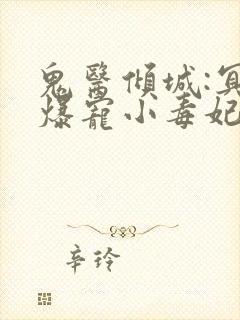 鬼醫傾城:冥
爆寵小毒妃
辛玲